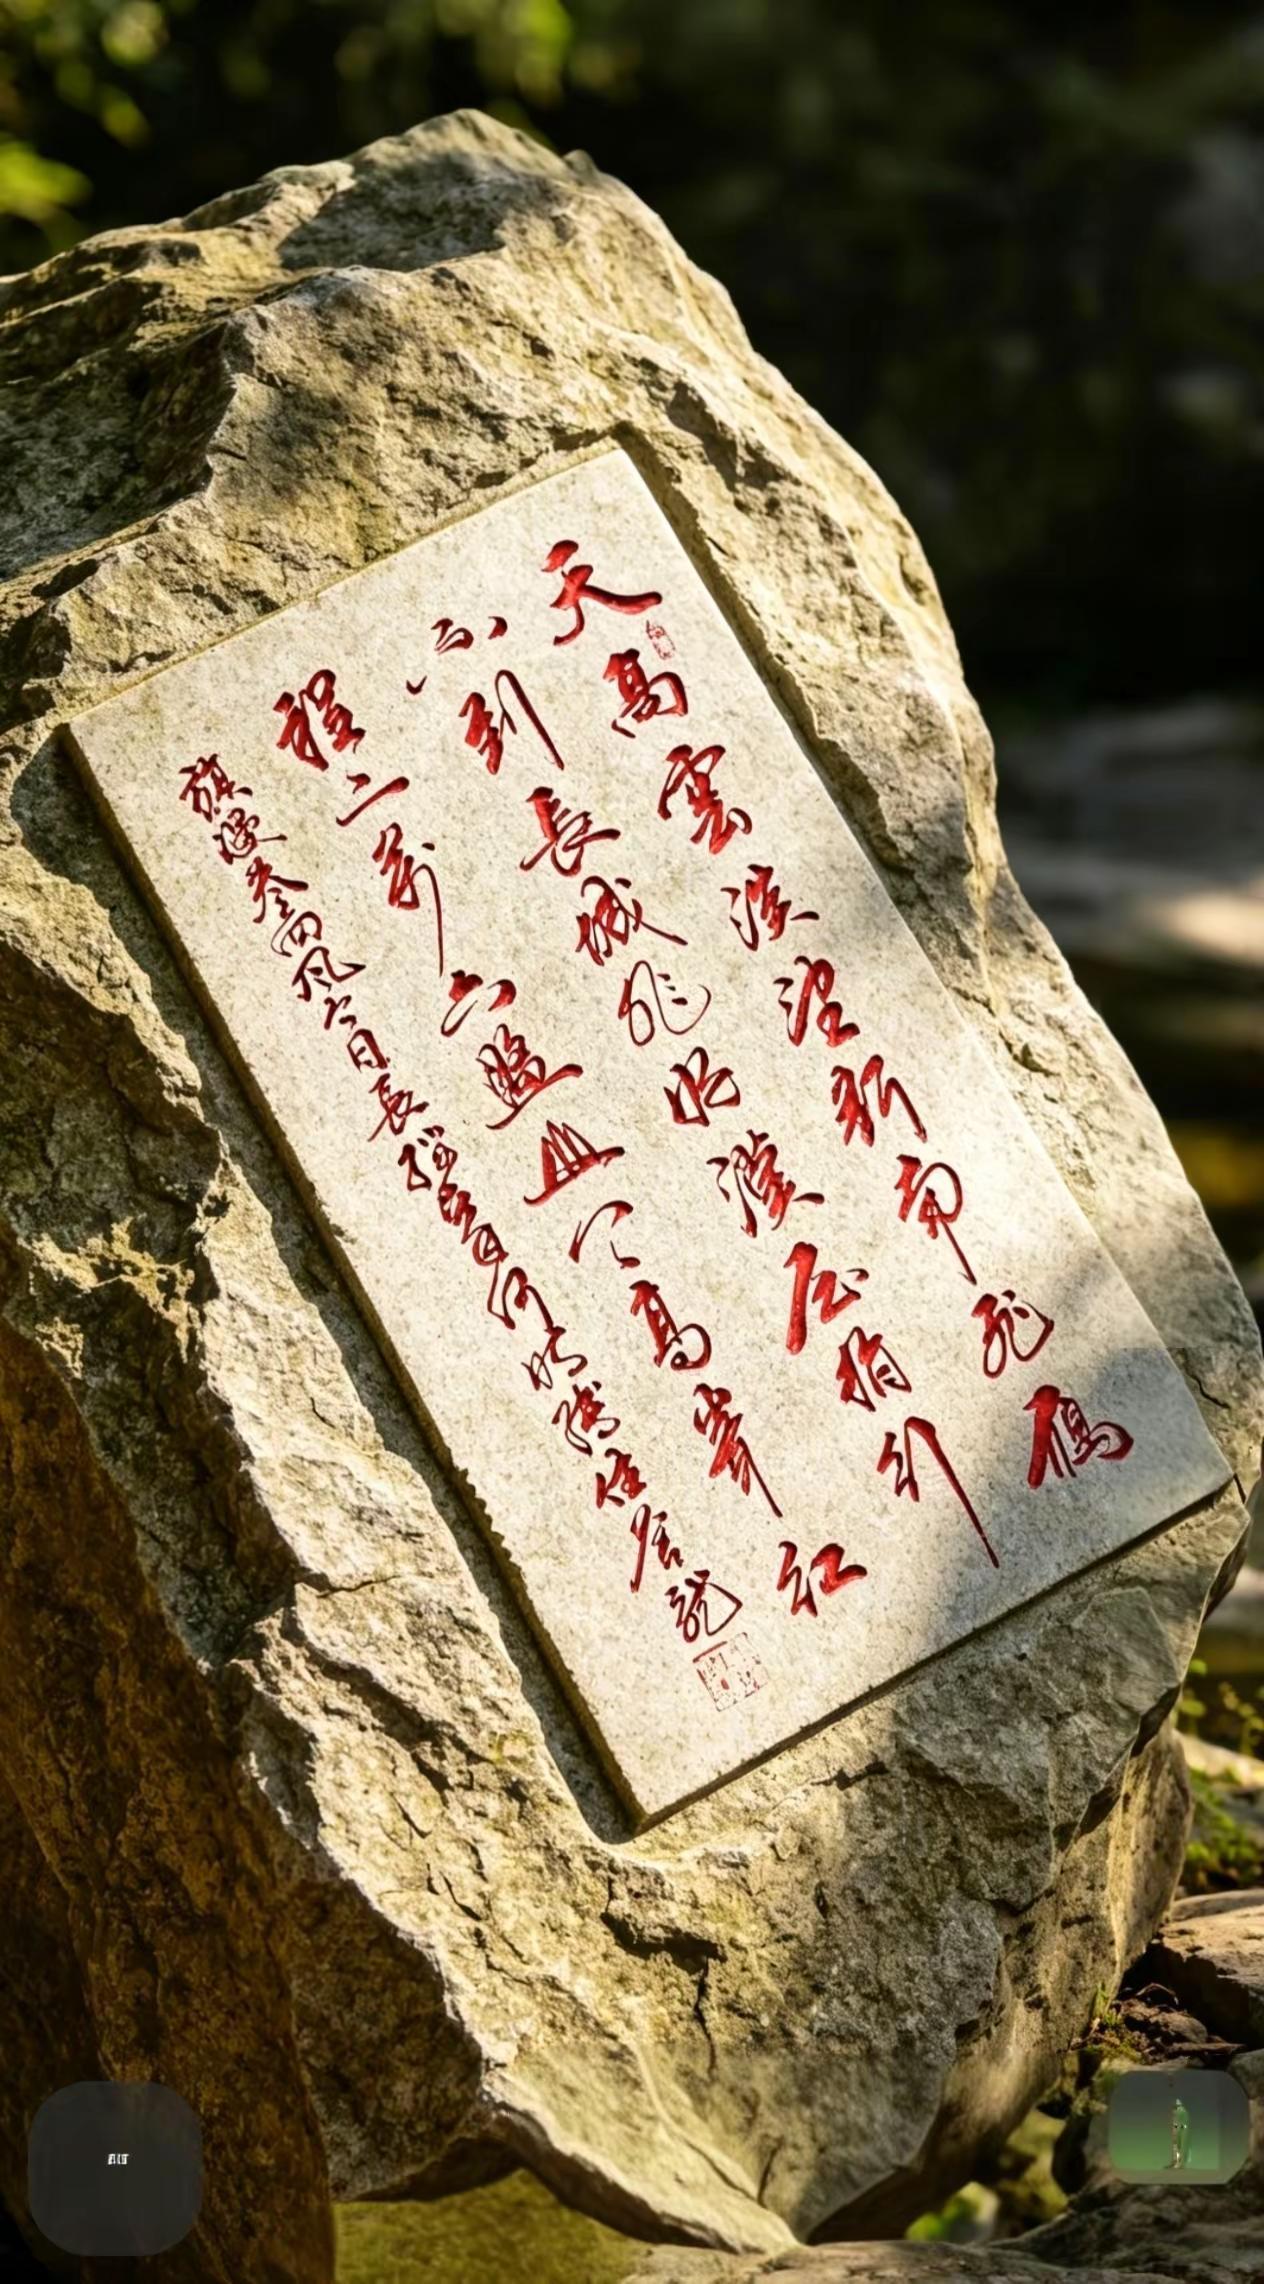 天高雲淡望斷南飛雁
不到長城非好漢屈指行
程二萬六盤山上高峯紅
旗漫卷西風今日長纓在手何時縛住蒼龍